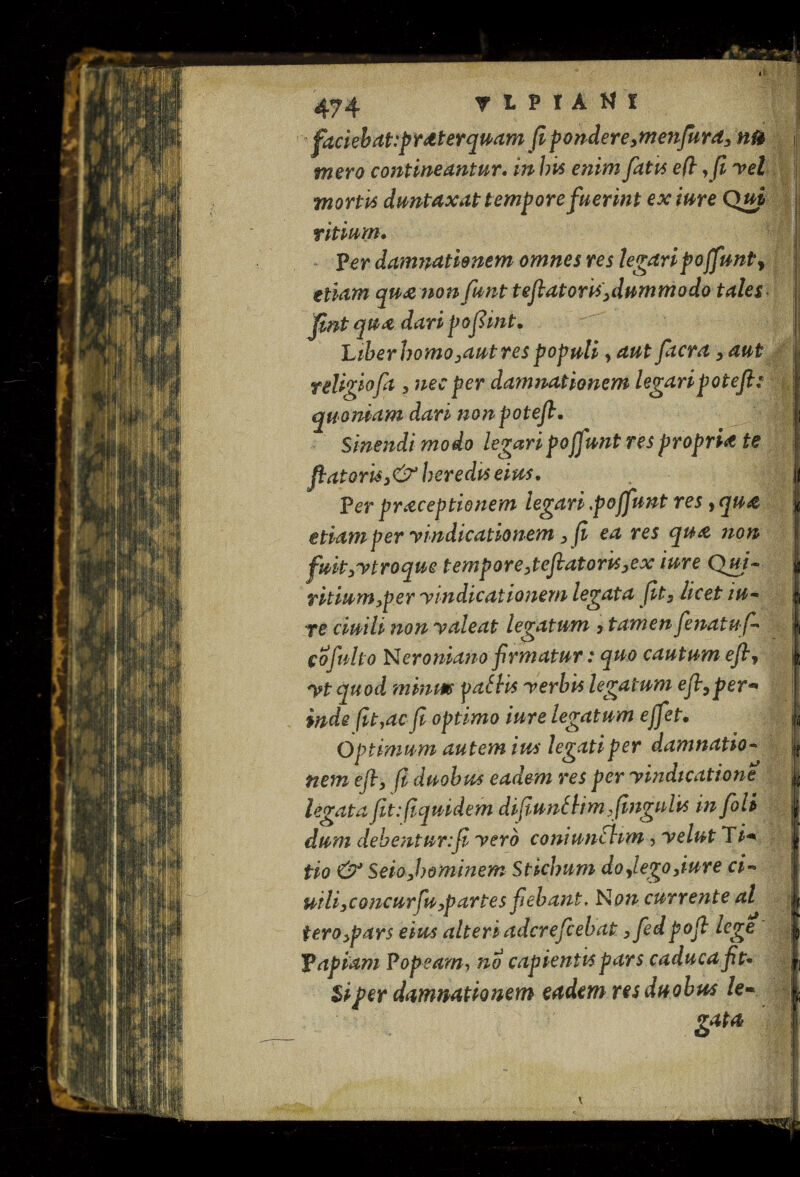 474 VLPIANI
faciebat: præterquam si pondere, mensura, nu
mero contineantur. in his enim satis est, si vel
mortis duntaxat tempore fuerint ex iure Qui
ritium.
Per damnationem omnes res legari possunt,
etiam quæ non sunt testatoris, dummodo tales
sint quæ dari poßint.
Liber homo, aut res populi, aut sacra, aut
religiosa, nec per damnationem legari potest:
quoniam dari non potest.
Sinendi modo legari possunt res propriæ te
statoris, & heredis eius.
Per præceptionem legari .possunt res, quæ
etiam per vindicationem, si ea res quæ non
fuit, vtroque tempore, testatoris, ex iure Qui-
ritium, per vindicationem legata sit, licet iu-
re ciuili non valeat legatum, tamen senatus-
cōsulto Neroniano firmatur: quo cautum est,
vt quod minus pactis verbis legatum est, per-
inde sit, ac si optimo iure legatum esset.
Optimum autem ius legati per damnatio-
nem est, si duobus eadem res per vindicationē
legata sit: siquidem disiunctim, singulis in soli
dum debentur: si verò coniunctim, velut Ti-
tio & Seio, hominem Stichum do, lego, iure ci-
uili, concursu, partes fiebant. Non currente al
tero, pars eius alteri adcrescebat, sed post legē
Papiam Popeam, nō capientis pars caduca fit.
Si per damnationem eadem res duobus le-
gata